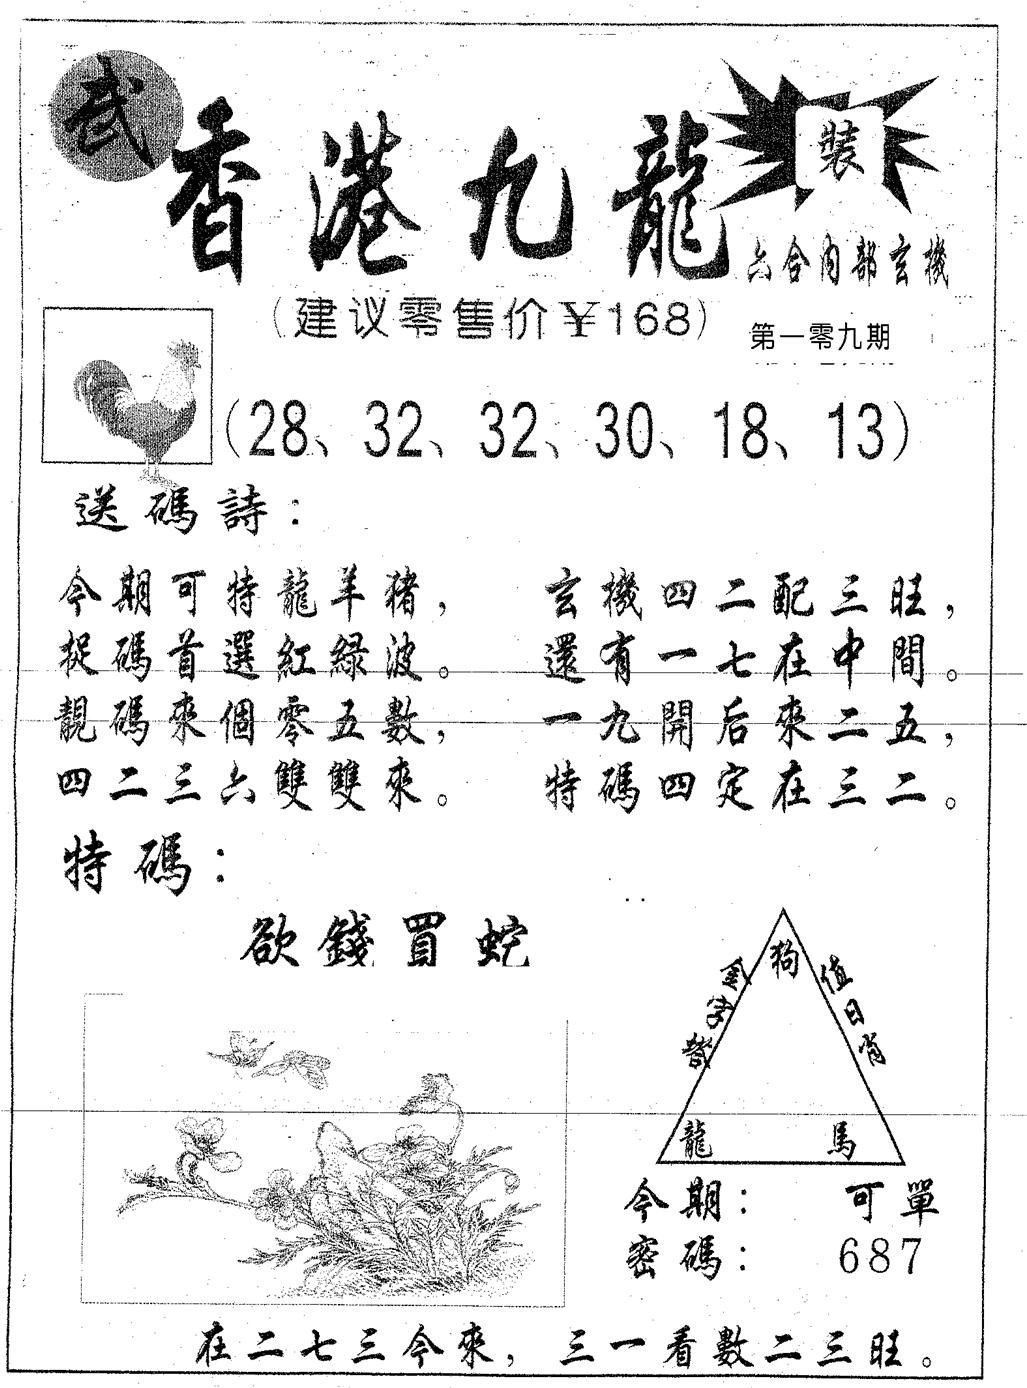 武
香港九龍
裝
六合內部玄機
(建议零售价¥168)
第一零九期
(28、32、32、30、18、13)
送碼詩：
今期可特龍羊豬，
捉碼首選紅綠波。
靚碼來個零五數，
四二三六雙雙來。
玄機四二配三旺，
還有一七在中間。
一九開后來二五，
特碼四定在三二。
特碼：
欲錢買蛇
狗
金字塔
值日肖
龍 馬
今期： 可單
密碼： 687
在二七三今來，三一看數二三旺。